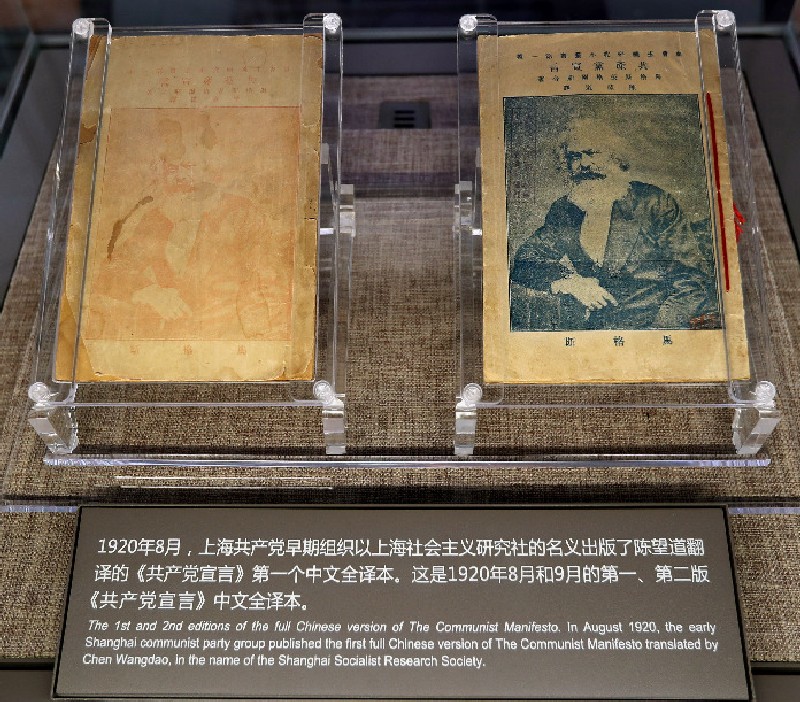 共產黨宣言
馬格斯安格爾斯合著
陳望道譯
馬格斯
1920年8月，上海共产党早期组织以上海社会主义研究社的名义出版了陈望道翻
译的《共产党宣言》第一个中文全译本。这是1920年8月和9月的第一、第二版
《共产党宣言》中文全译本。
The 1st and 2nd editions of the full Chinese version of The Communist Manifesto. In August 1920, the early
Shanghai communist party group published the first full Chinese version of The Communist Manifesto translated by
Chen Wangdao, in the name of the Shanghai Socialist Research Society.